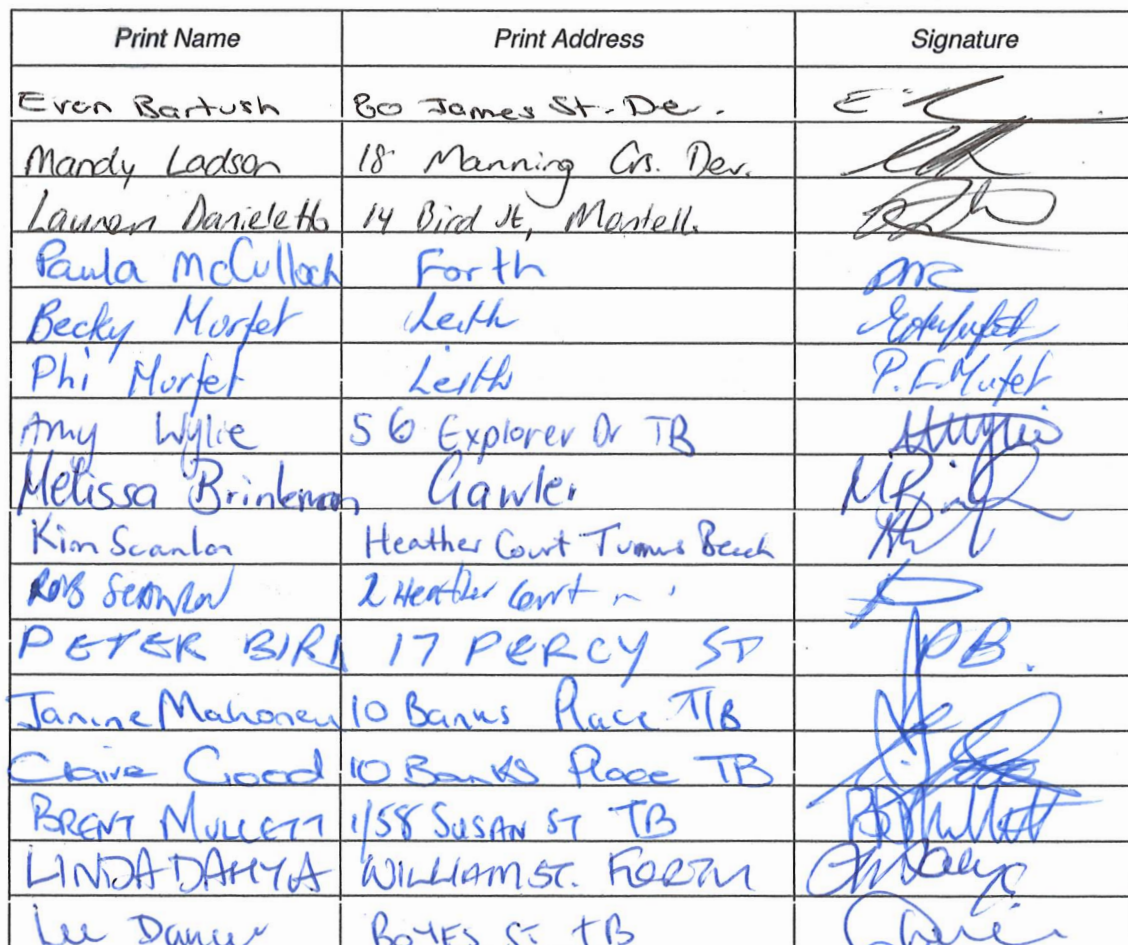 Print Name Print Address Signature
Evan Bartush 80 James St. Dev. E
Mandy Ladson 18 Manning Crs. Dev.
Lauren 14 Bird St,
Paula McCulloch Forth PMC
Becky Morfet Leith
Phi Morfet Leith P. Morfet
Amy Wylie 56 Explorer Dr TB AWylie
Melissa Brinkman Gawler
Kim Scanlon Heather Court Turners Beach
Rob Scanlon 2 Heather Court " "
PETER BIRD 17 PERCY ST PB.
Janine Mahoney 10 Banks Place T/B
Claire Good 10 Banks Place TB
BRENT MULLETT 1/58 SUSAN ST TB BMullett
LINDA DAHYA WILLIAM ST. FORTH
Lee BOYES ST TB